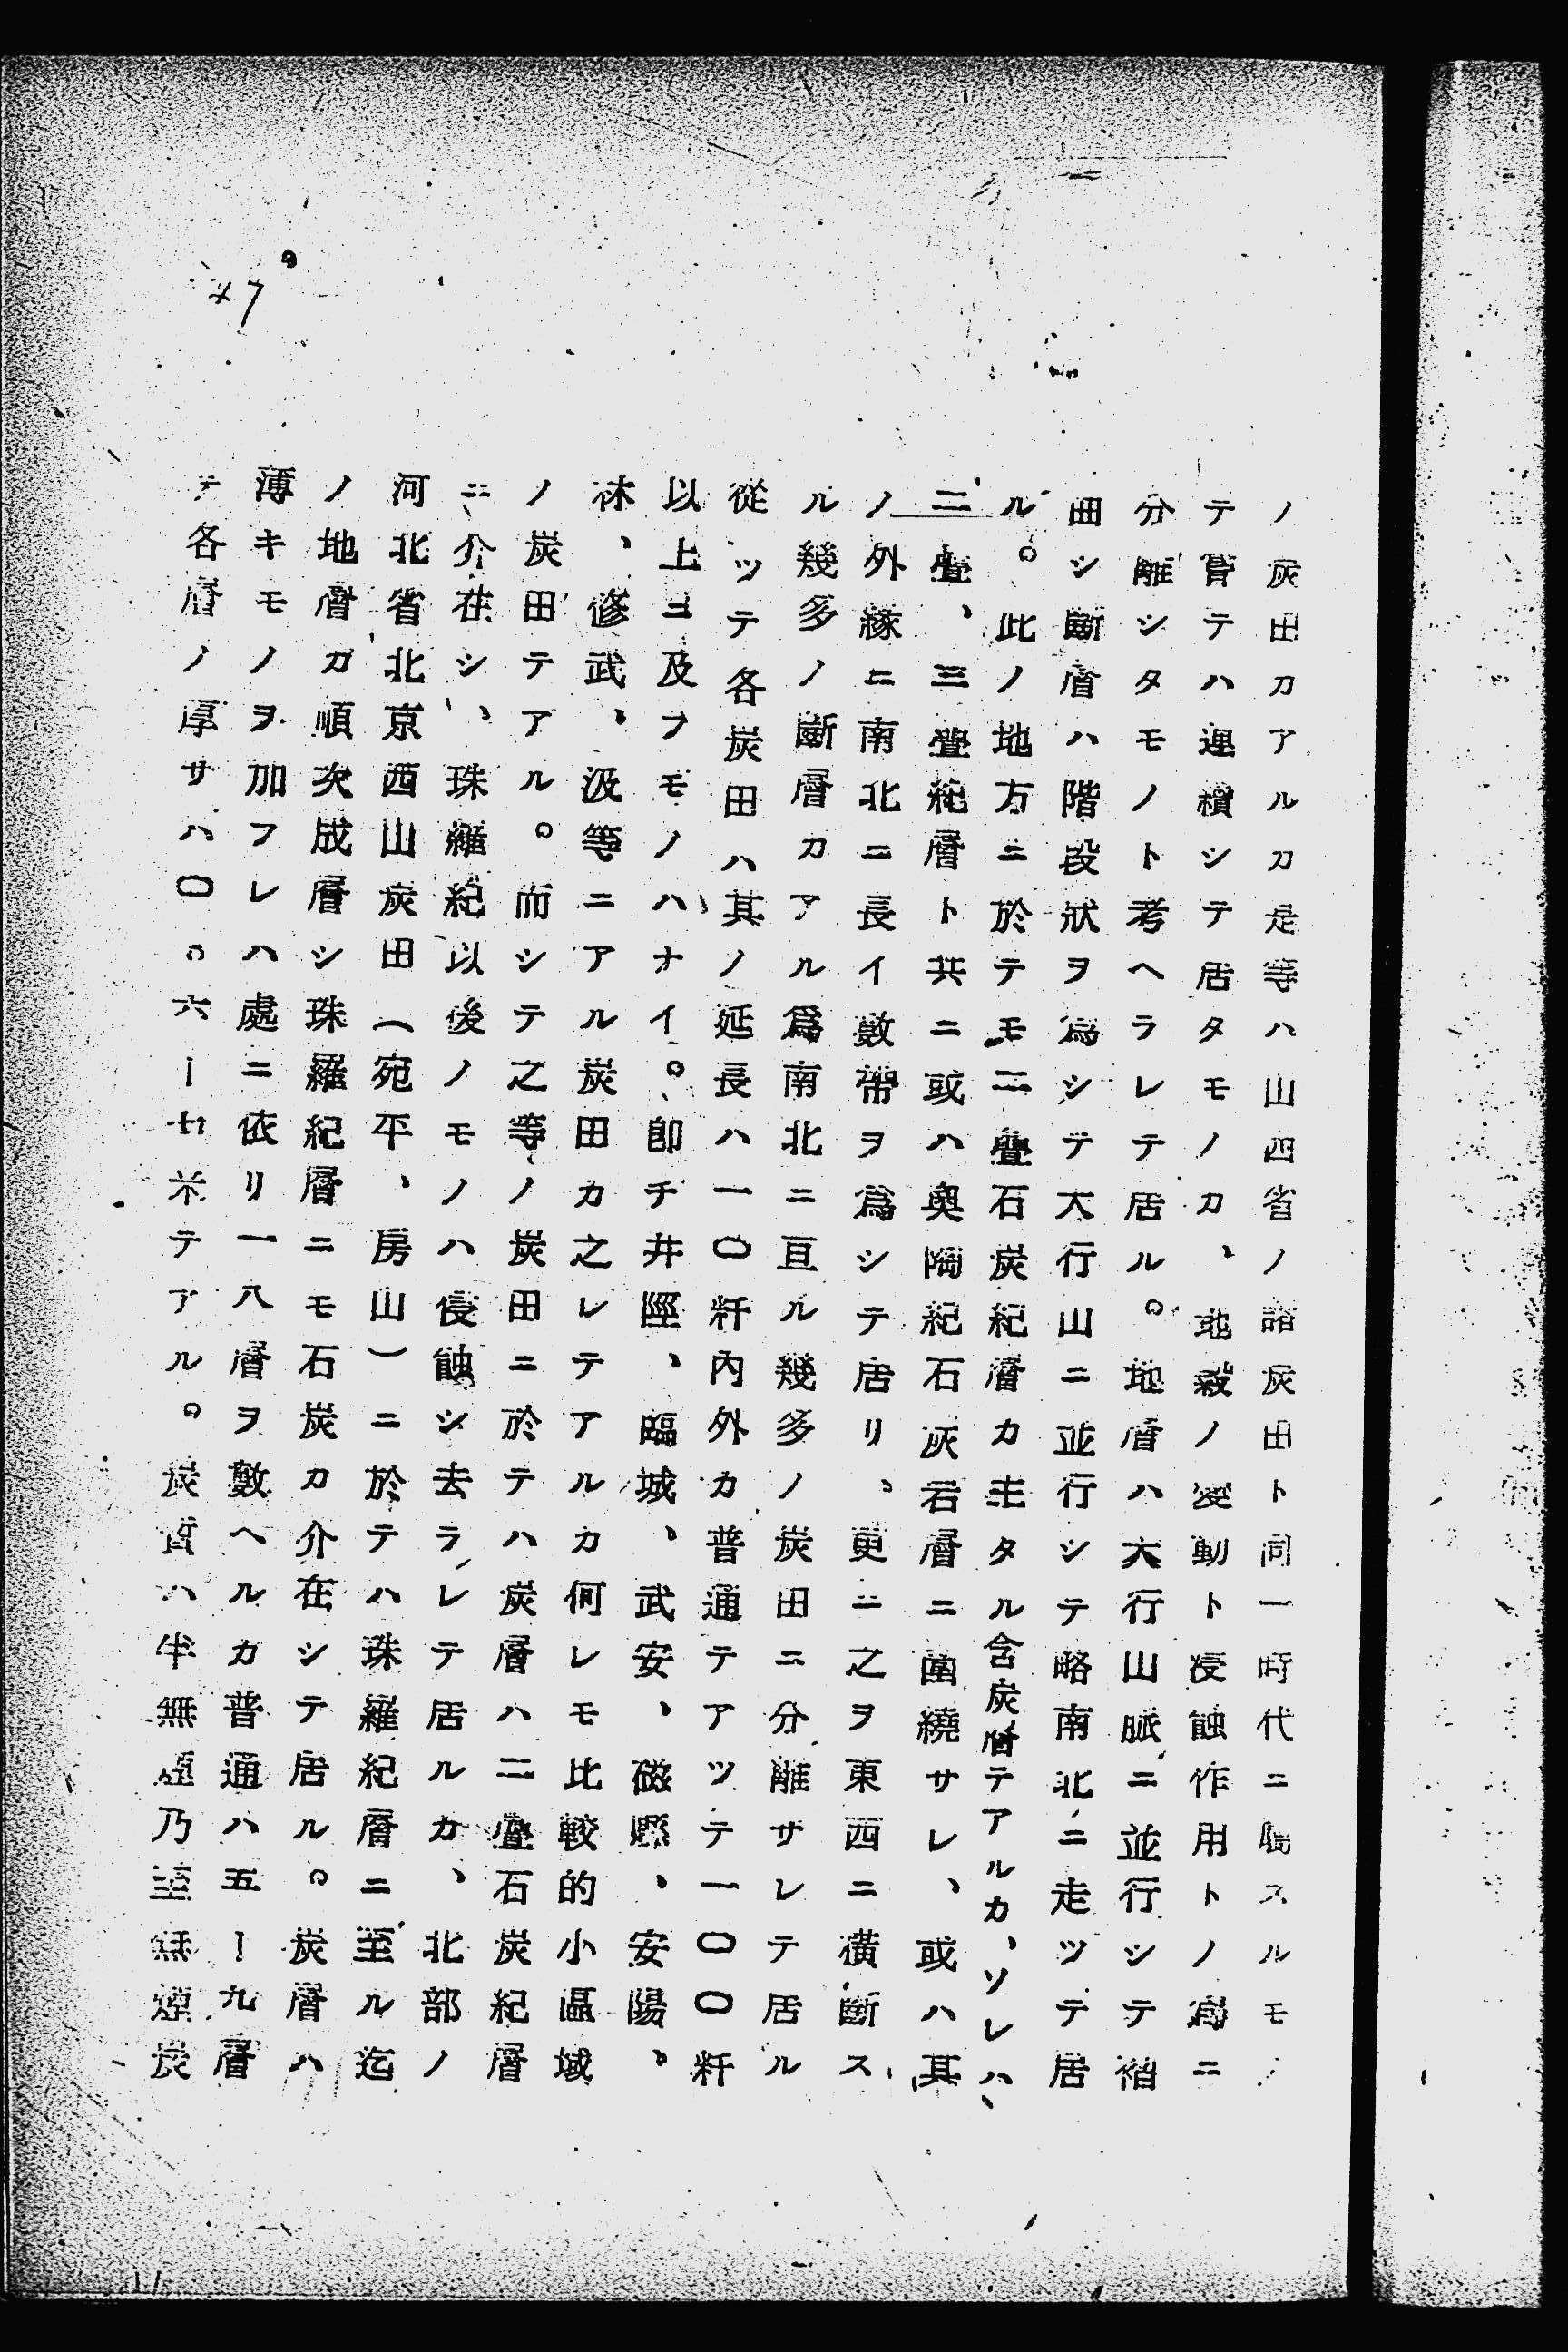 ノ炭田カアルカ是等ハ山西省ノ諸炭田ト同一時代ニ屬スルモノ
テ嘗テハ連續シテ居タモノカ、地殻ノ變動ト浸蝕作用トノ爲ニ
分離シタモノト考ヘラレテ居ル。地層ハ大行山脈ニ並行シテ褶
曲シ斷層ハ階段狀ヲ爲シテ大行山ニ並行シテ略南北ニ走ツテ居
ル。此ノ地方ニ於テモ二疊石炭紀層カ主タル含炭層テアルカ、ソレハ、
二疊、三疊紀層ト共ニ或ハ奧陶紀石灰岩層ニ圍繞サレ、或ハ其
ノ外緣ニ南北ニ長イ數帶ヲ爲シテ居リ、更ニ之ヲ東西ニ橫斷ス
ル幾多ノ斷層カアル爲南北ニ亘ル幾多ノ炭田ニ分離サレテ居ル
從ツテ各炭田ハ其ノ延長ハ一〇粁內外カ普通テアツテ一〇〇粁
以上ニ及フモノハナイ。卽チ井陘、臨城、武安、磁縣、安陽、
林、修武、汲等ニアル炭田カ之レテアルカ何レモ比較的小區域
ノ炭田テアル。而シテ之等ノ炭田ニ於テハ炭層ハ二疊石炭紀層
ニ介在シ、珠羅紀以後ノモノハ侵蝕シ去ラレテ居ルカ、北部ノ
河北省北京西山炭田（宛平、房山）ニ於テハ珠羅紀層ニ至ル迄
ノ地層ガ順次成層シ珠羅紀層ニモ石炭カ介在シテ居ル。炭層ハ
薄キモノヲ加フレハ處ニ依リ一八層ヲ數ヘルカ普通ハ五ー九層
テ各層ノ厚サハ〇。六ー七米テアル。炭質ハ半無煙乃至無煙炭
47